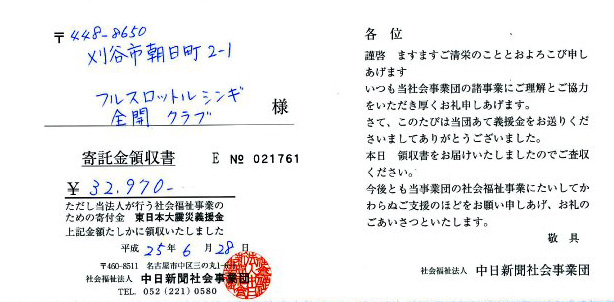 〒448-8650
刈谷市朝日町2-1
フルスロットルシンギ
全開 クラブ 様
寄託金領収書 E № 021761
¥32.970-
ただし当法人が行う社会福祉事業の
ための寄付金 東日本大震災義援金
上記金額たしかに領収いたしました
平成 25年 6月 28日
〒460-8511 名古屋市中区三の丸1-
社会福祉法人 中日新聞社会事業団
TEL. 052(221)0580
各位
謹啓 ますますご清栄のこととおよろこび申し
あげます
いつも当社会事業団の諸事業にご理解とご協力
をいただき厚くお礼申しあげます。
さて、このたびは当団あて義援金をお送りくだ
さいましてありがとうございました。
本日 領収書をお届けいたしましたのでご査収
ください。
今後とも当事業団の社会福祉事業にたいしてか
わらぬご支援のほどをお願い申しあげ、お礼の
ごあいさつといたします。
敬具
社会福祉法人 中日新聞社会事業団